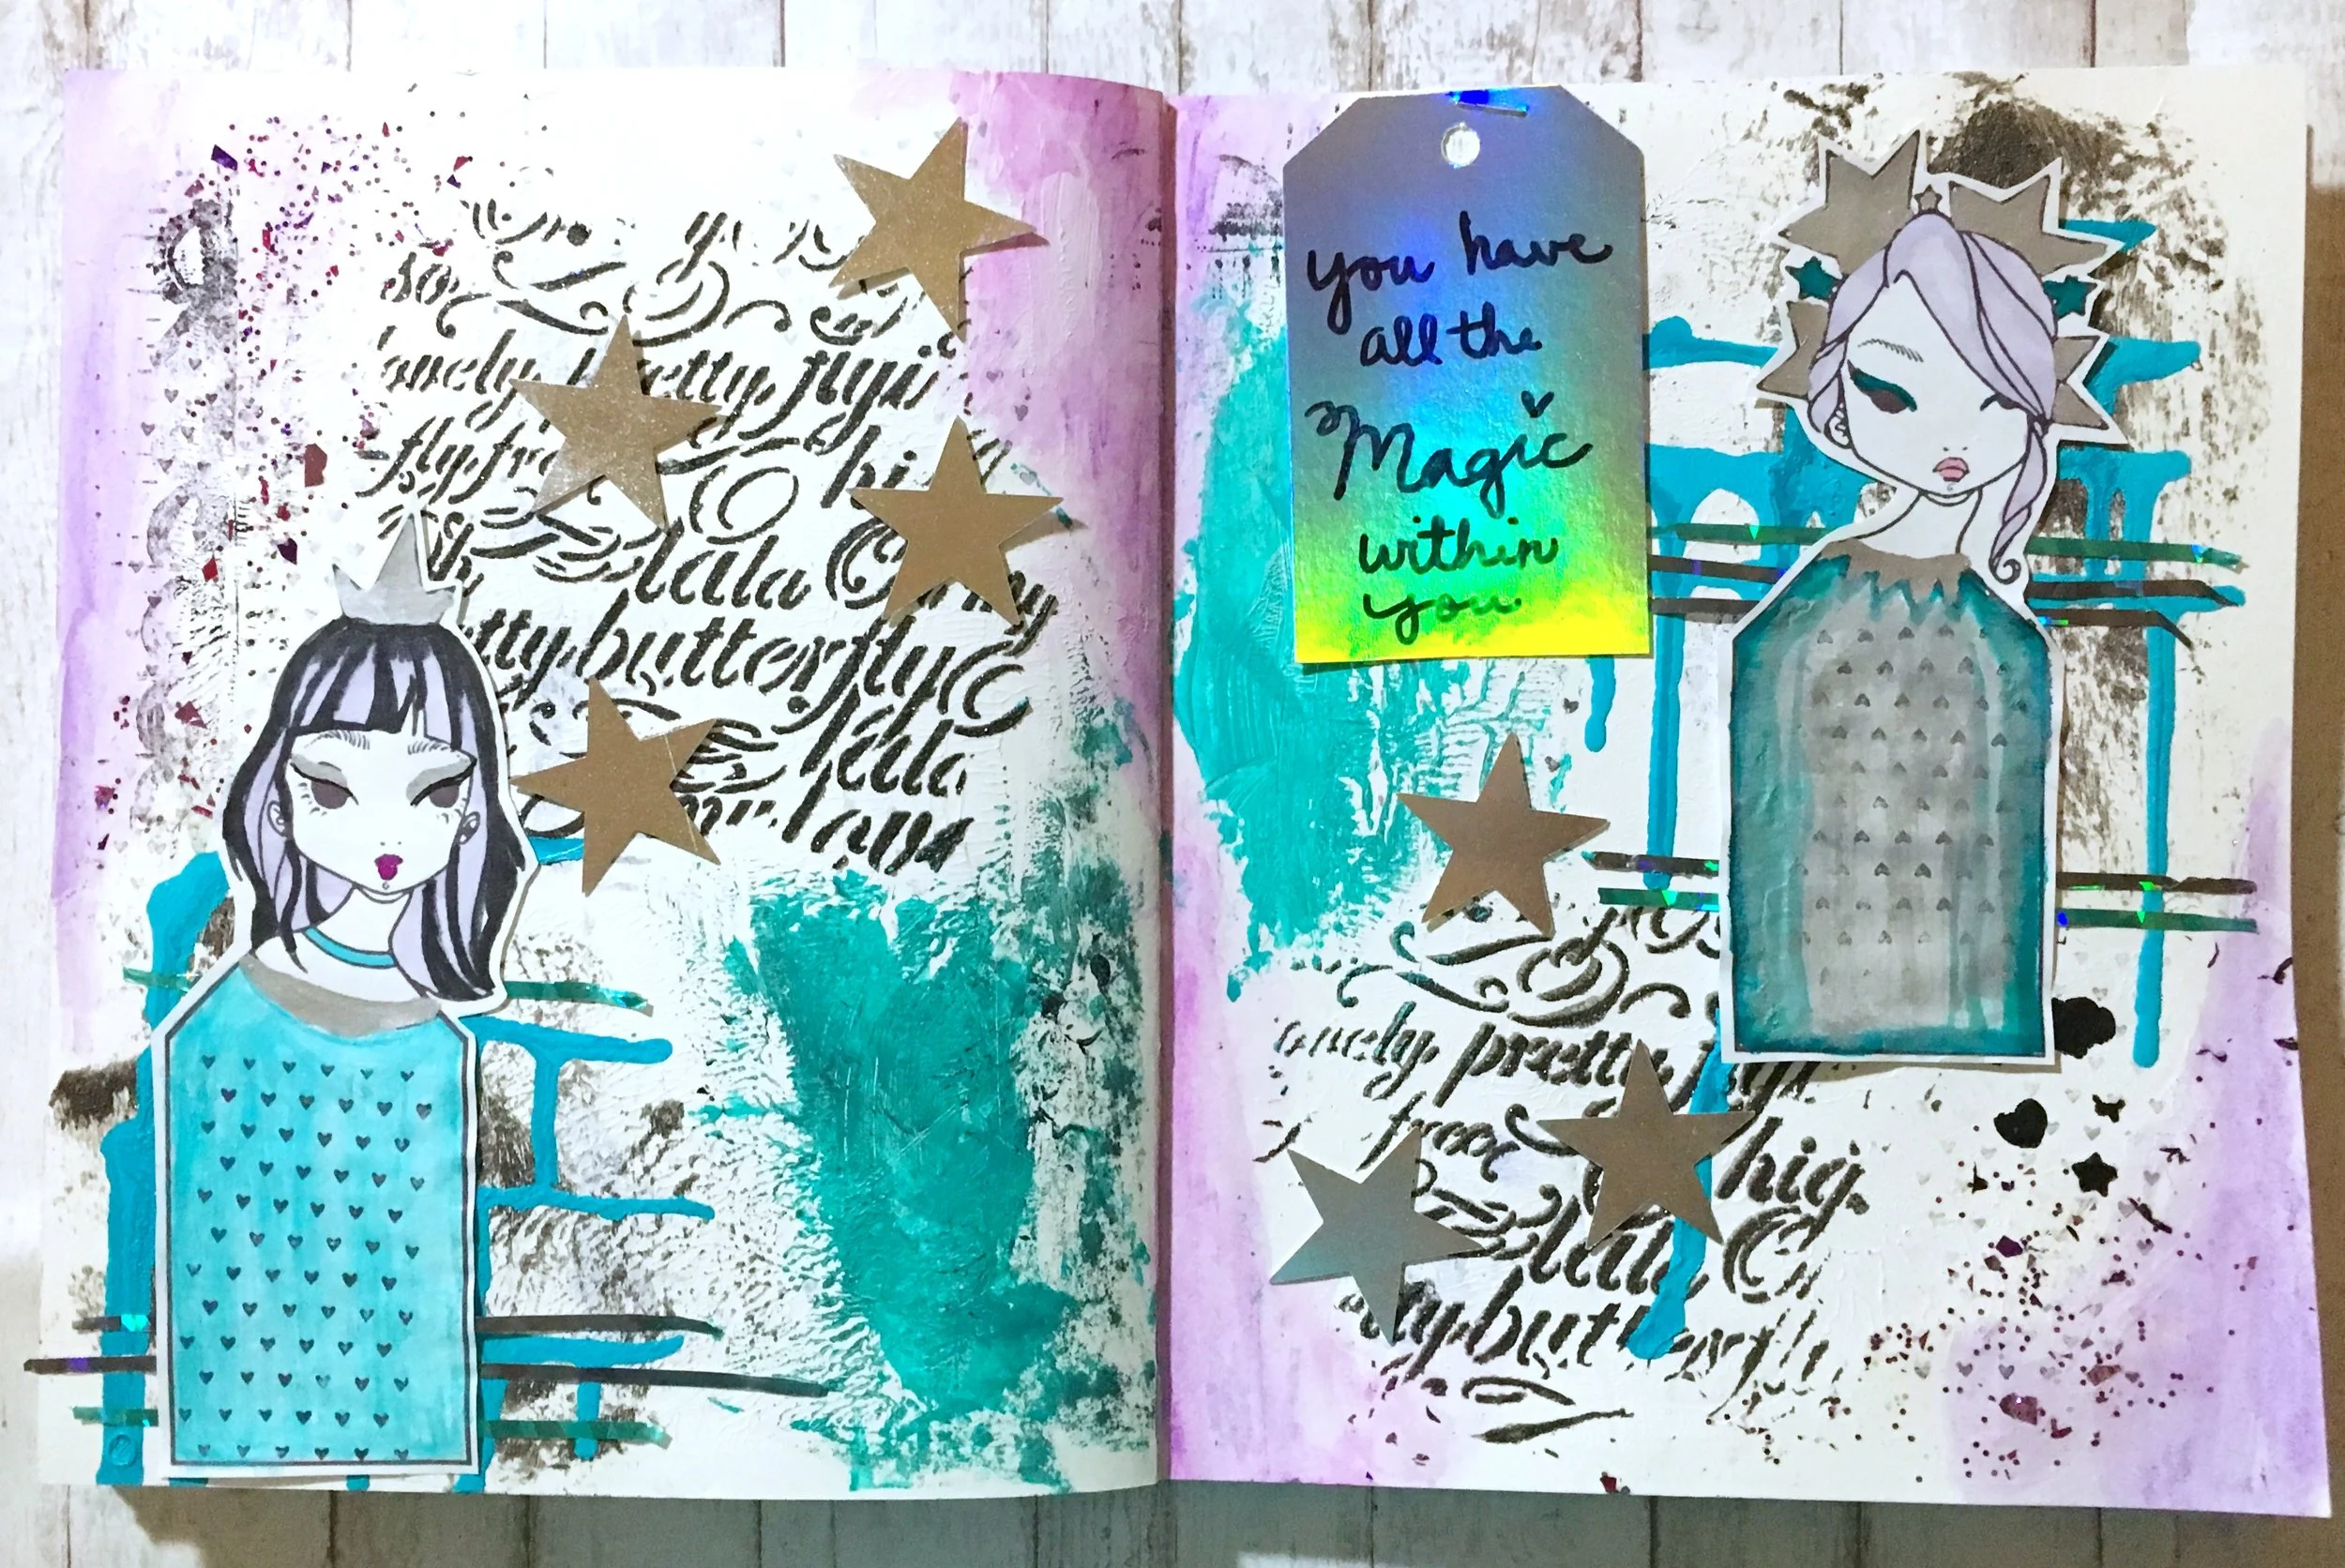 so
lonely pretty flyi
fly, fre
hi
lala my
tty, butterfly
lala
my love
you have
all the
Magic
within
you
onely, pretty, flyi
free
hig
lala
tty, butterfly